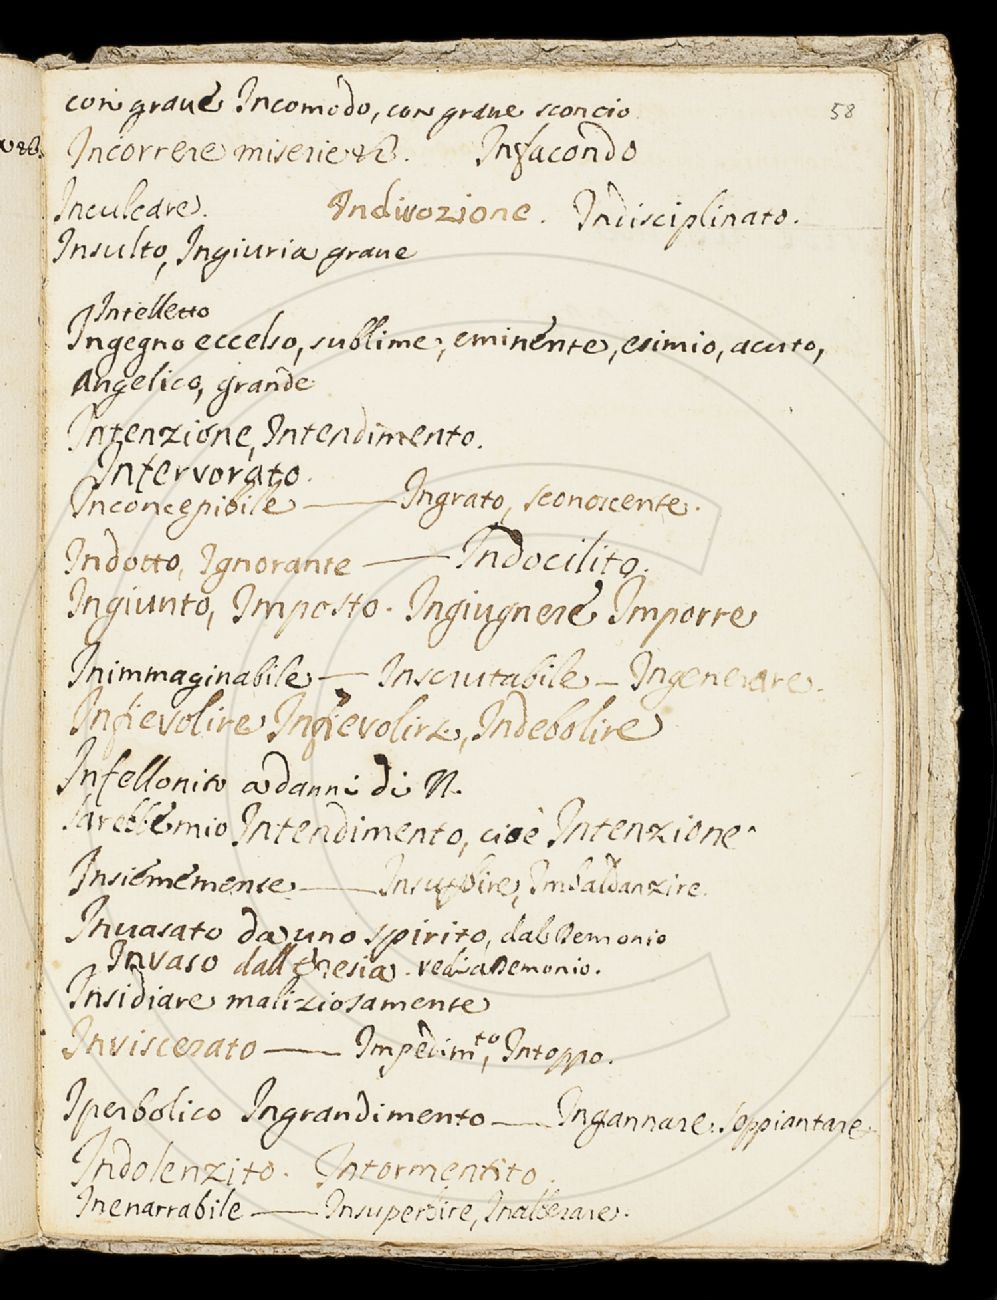 con graue Incomodo, con graue sconcio
58
Incorrere miserie &c. Infacondo
Inculcare. Indivozione. Indisciplinato.
Insulto, Ingiuria graue
Intelletto
Ingegno eccelso, sublime, eminente, esimio, acuto,
Angelico, grande
Intenzione, Intendimento.
Infervorato.
Inconcepibile — Ingrato, sconoscente.
Indotto, Ignorante — Indocilito.
Ingiunto, Imposto. Ingiugnere Imporre
Inimmaginabile — Inscrutabile — Ingenerare.
Infievolire Infievolirsi, Indebolire
Infellonito a danni di N.
Sarebbe mio Intendimento, cioè Intenzione
Insiememente — Imbaldanzire.
Inuasato da uno spirito, dal Demonio
Invaso dall'Eresia. vedi a Demonio.
Insidiare maliziosamente
Inviscerato — Impedim.to, Intoppo.
Iperbolico Ingrandimento — Ingannare, Soppiantare
Indolenzito. Intormentito.
Inenarrabile — Insuperbire, Inalberare.